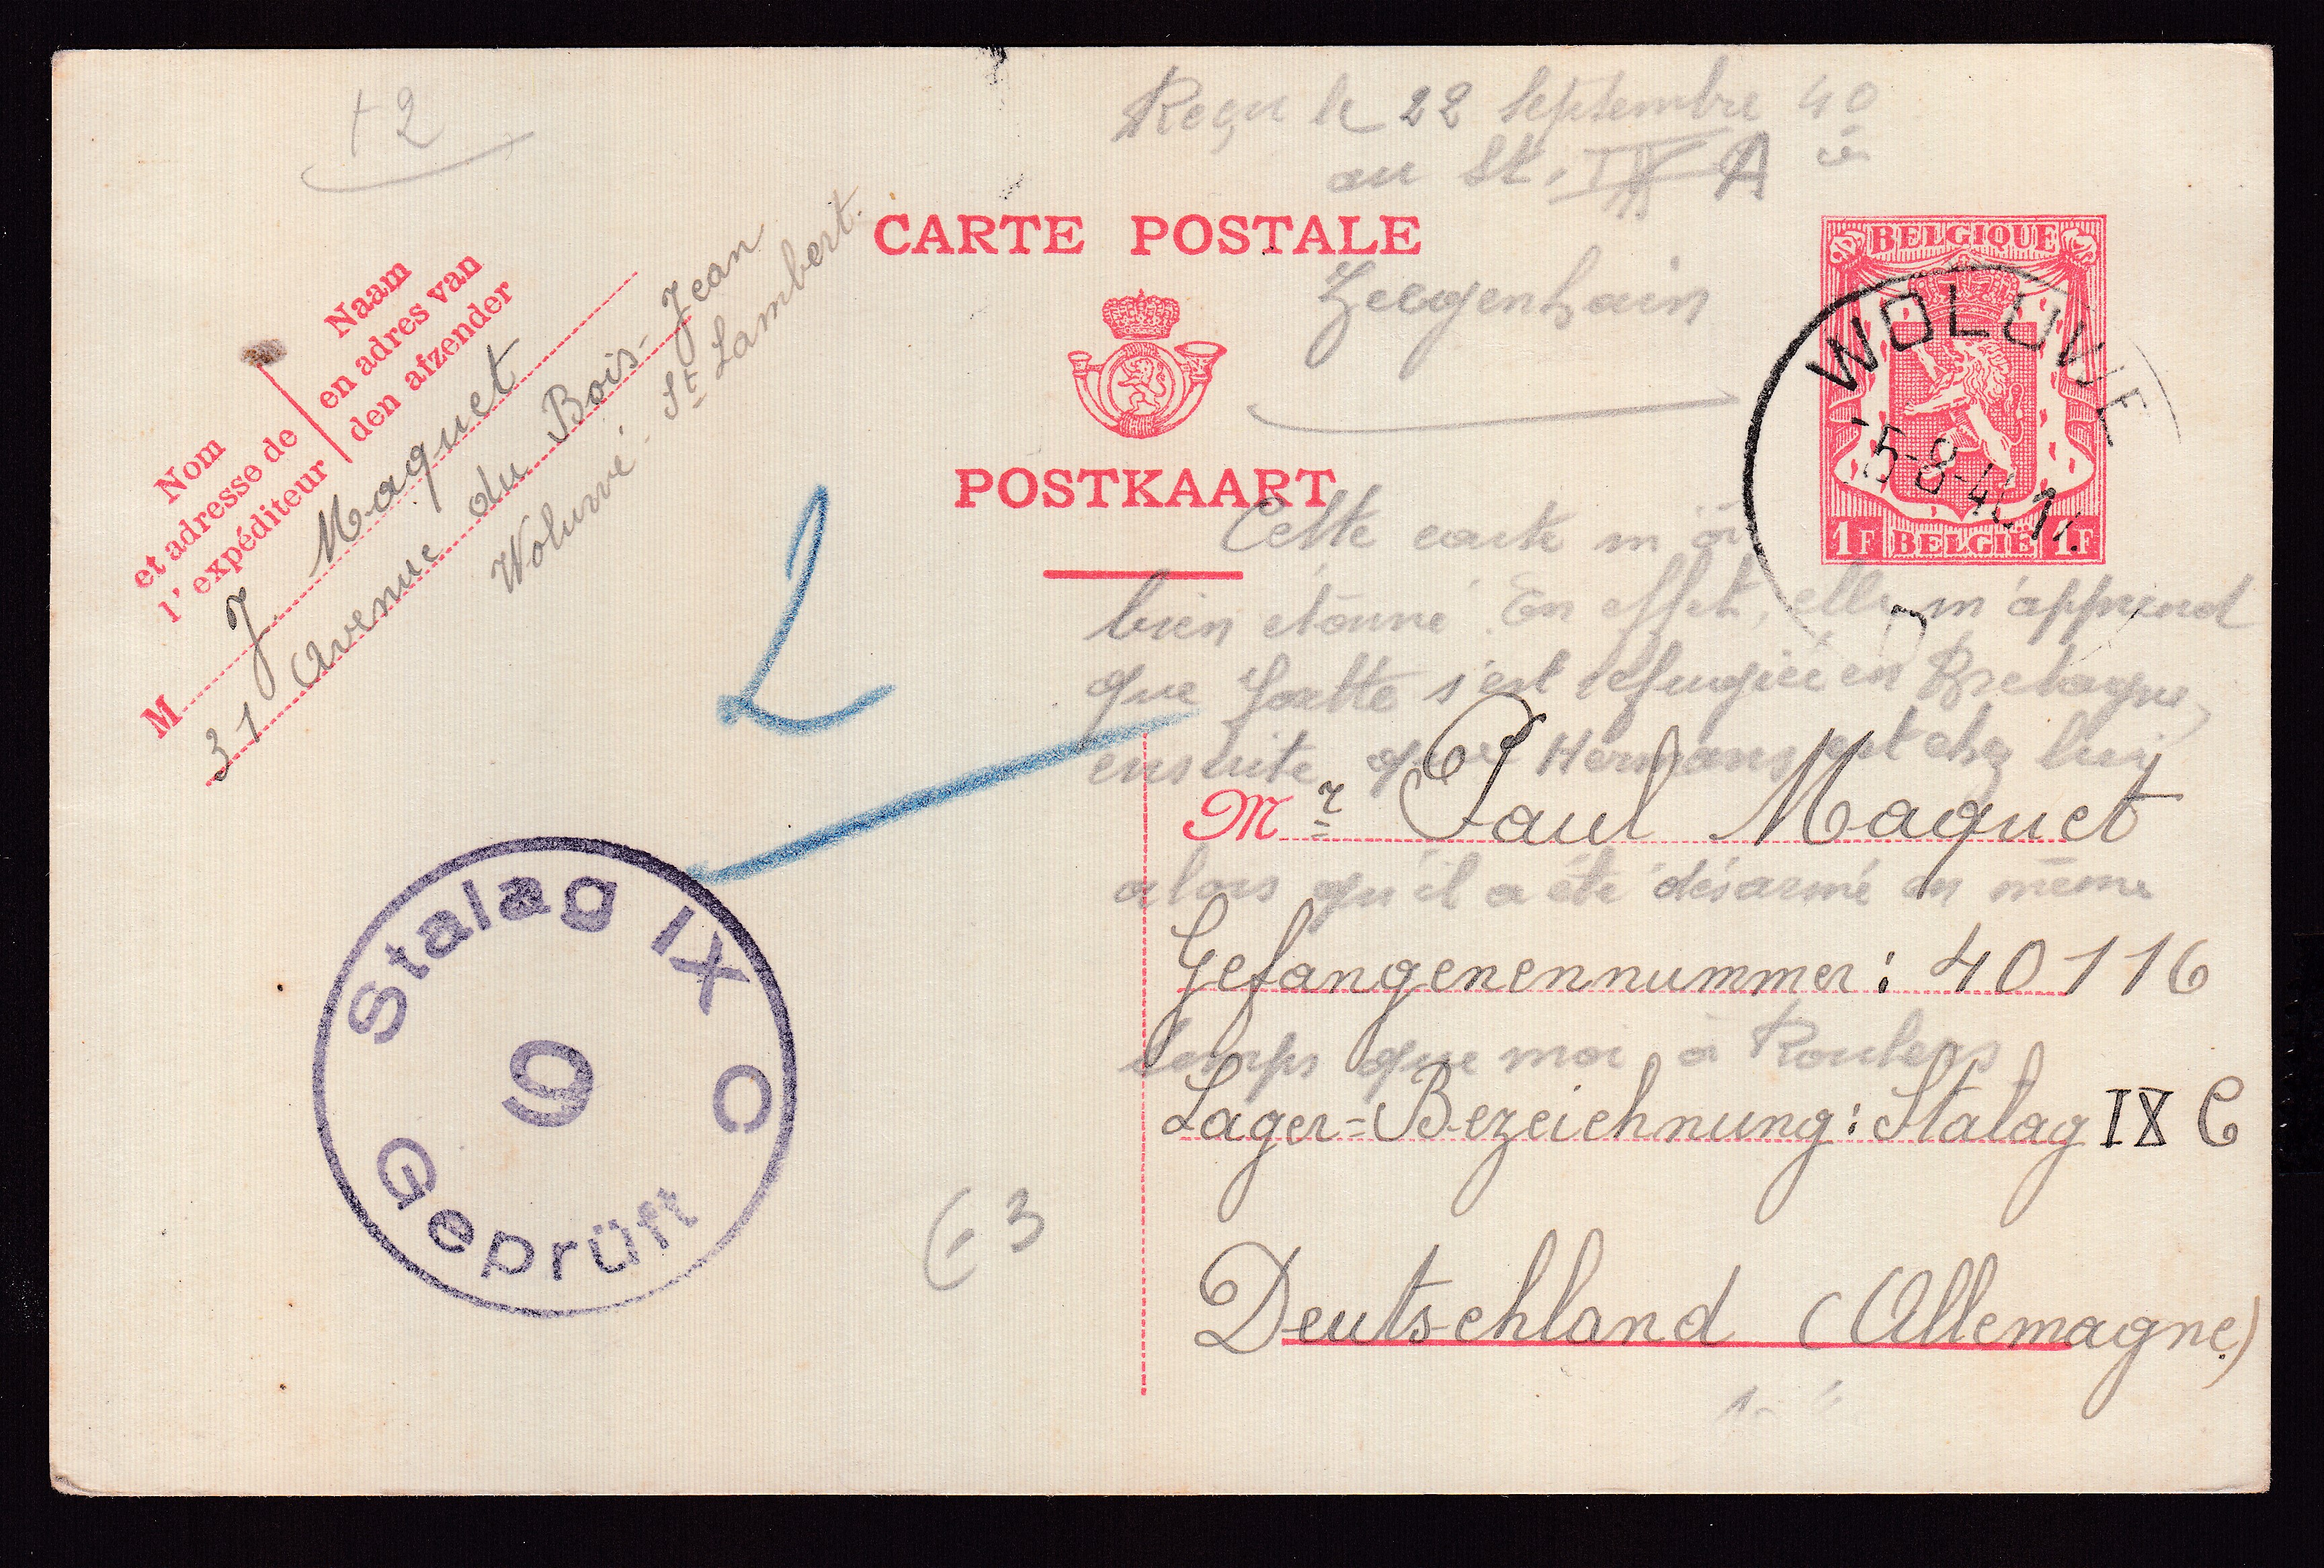 +2
Reçu le 22 Septembre 40
au St. IX A
Ziegenhain
CARTE POSTALE
POSTKAART
BELGIQUE
1F BELGIË 1F
WOLUWE
-5-8-40 1
Naam
en adres van
den afzender
Nom
et adresse de
l'expéditeur
M J Maquet
31 Avenue du Bois-Jean
Woluwé-St Lambert.
Cette carte m'a
bien étonné. En effet, elle m'apprend
que s'est réfugiée en Bretagne,
ensuite que Hermans est chez lui
Mr Paul Maquet
alors qu'il a été désarmé en même
Gefangenennummer: 40116
temps que moi à Roulers
Lager=Bezeichnung: Stalag IX C
Deutschland (Allemagne)
Stalag IX C
9
Geprüft
3